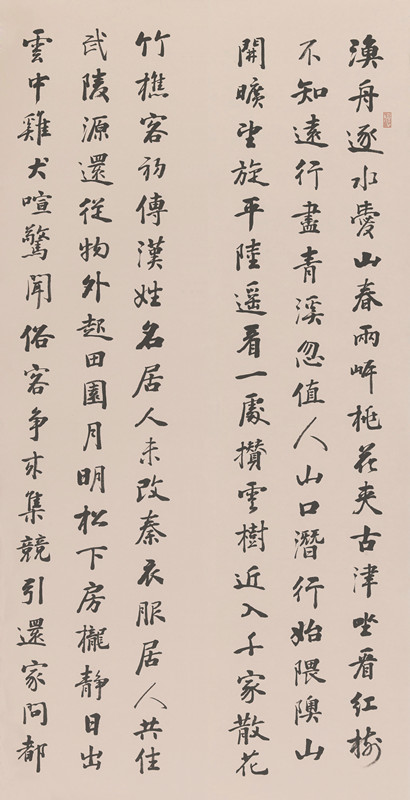 漁舟逐水愛山春兩岸桃花夾古津坐看紅樹
不知遠行盡青溪忽值人山口潛行始隈隩山
開曠望旋平陸遥看一處攢雲樹近入千家散花
竹樵客初傳漢姓名居人未改秦衣服居人共住
武陵源還從物外起田園月明松下房櫳靜日出
雲中雞犬喧驚聞俗客争來集競引還家問都